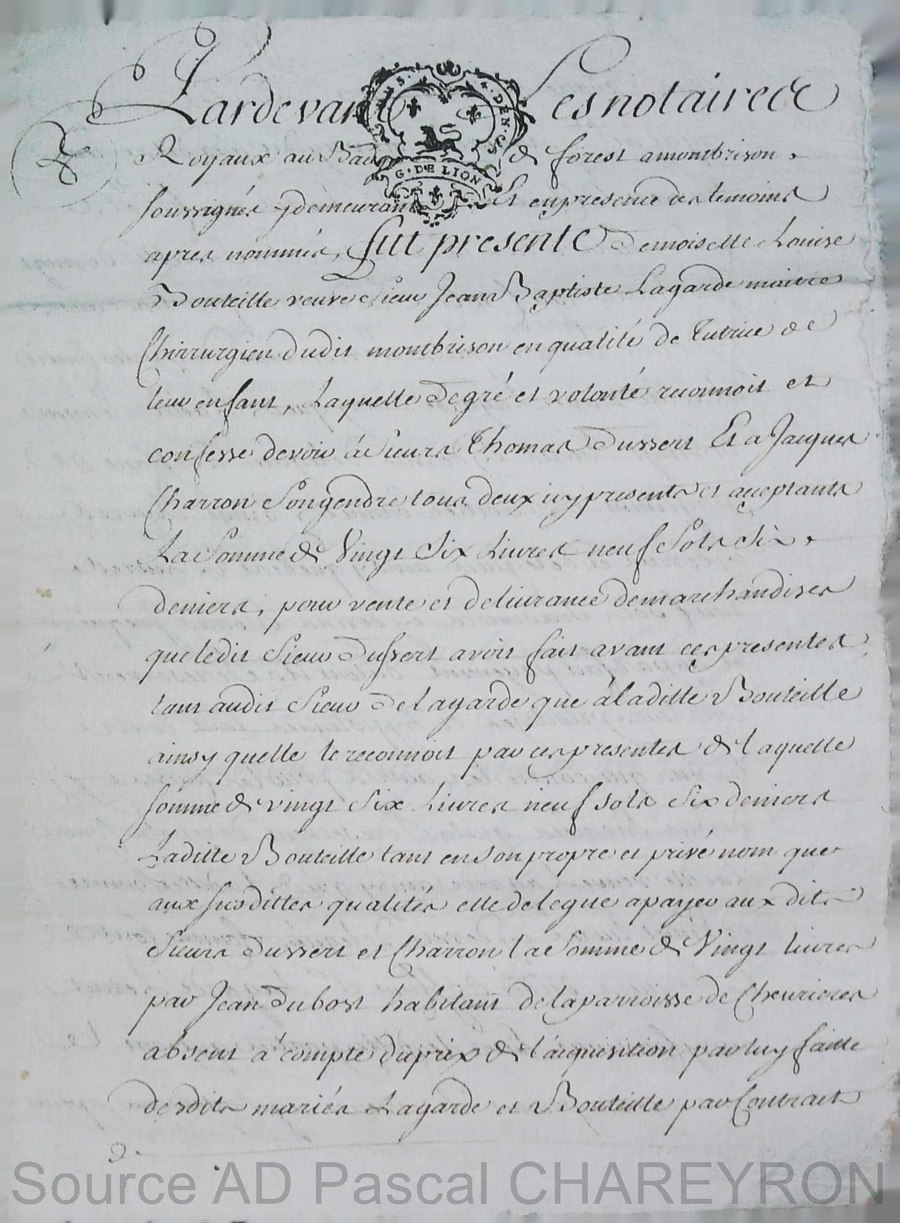 Pardevant Les notairee
Royaux au Bail de forest a montbrison
soussignés y demeurant Et en presence des temoins
apres nommés, fut presente Demoiselle Louise
Bouteille veuve sieur Jean Baptiste Lagarde maitre
Chirrurgien dudit montbrison en qualité de Tutrice de
leur enfant, Laquelle de gré et volonté reconnoit et
confesse devoir à Sieurs Thomas Dussert Et a Jacques
Charron Son gendre tous deux icy presents et acceptants
La Somme de Vingt Six Livres neuf Sols Six
deniers, pour vente et delivrance de marchandises
que ledit Sieur Dussert avoit fait avant ces presentes
tant audit Sieur Delagarde que à laditte Bouteille
ainsy quelle le reconnoit par ces presentes de laquelle
somme de vingt Six Livres neuf sols Six deniers
Laditte Bouteille tant en son propre et privé nom que
aux susdittes qualités elle delegue a payer aux dits
Sieurs Dussert et Charron la Somme de Vingt Livres
par Jean Dubost habitant de la parroisse de Chevrieres
absent à compte du prix de l'acquisition par luy faitte
desdits mariés Lagarde et Bouteille par Contrait
4 DEN.
G. DE LION
Source AD Pascal CHAREYRON